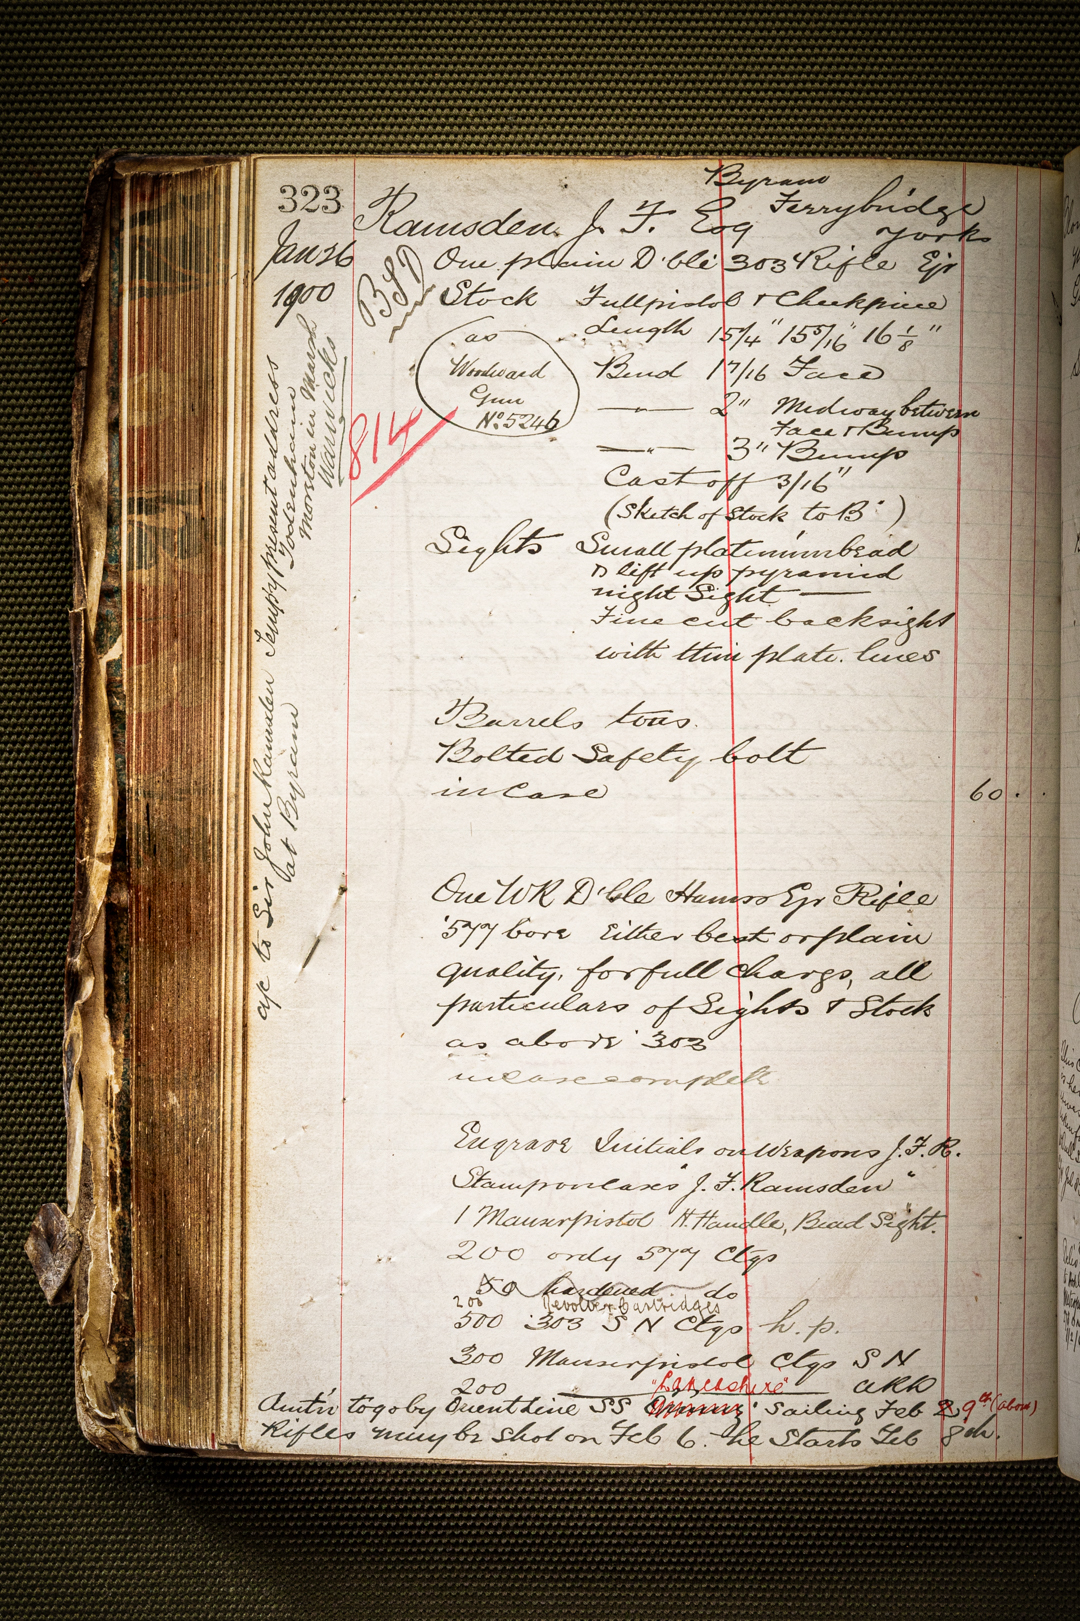 323
Byram
Ferrybridge
York
Ramsden. J. F. Esq
Jan 26
1900
One plain D'ble 303 Rifle Ejr
Stock Full pistol & Cheekpiece
as
Woodward
Gun
No 5246
814
Length 15 1/4" 15 5/16" 16 1/8"
Bend 1 7/16 Face
—"— 2" Midway between
Face & Bump
—"— 3" Bump
Cast off 3/16"
(Sketch of Stock to B )
Sights Small platinum bead
& lift up pyramid
night Sight —
Fine cut backsight
with thin plate. lines
Barrels
Bolted Safety bolt
in Case
60 . .
One WR D'ble Hamrs Ejr Rifle
577 bore Either best or plain
quality, for full charge, all
particulars of Sights & Stock
as above 303
in case complete
Engrave Initials on Weapons J. F. R.
Stamp on Cases "J. F. Ramsden"
1 Mauser pistol H. Handle, Bead Sight.
200 ordy 577 Ctgs
50 hardened do
200 Revolver Cartridges
500 303 S N Ctgs h. p.
300 Mauser pistol Ctgs S N
200 ——
"Lancashire"
Auth'n to go by Orient Line SS Sailing Feb 9th (above)
Rifles may be shot on Feb 6. He Starts Feb 8th.
a/c to Sir John Ramsden
at Byram
Tempy present address
Todenham
Moreton in Marsh
Warwicks